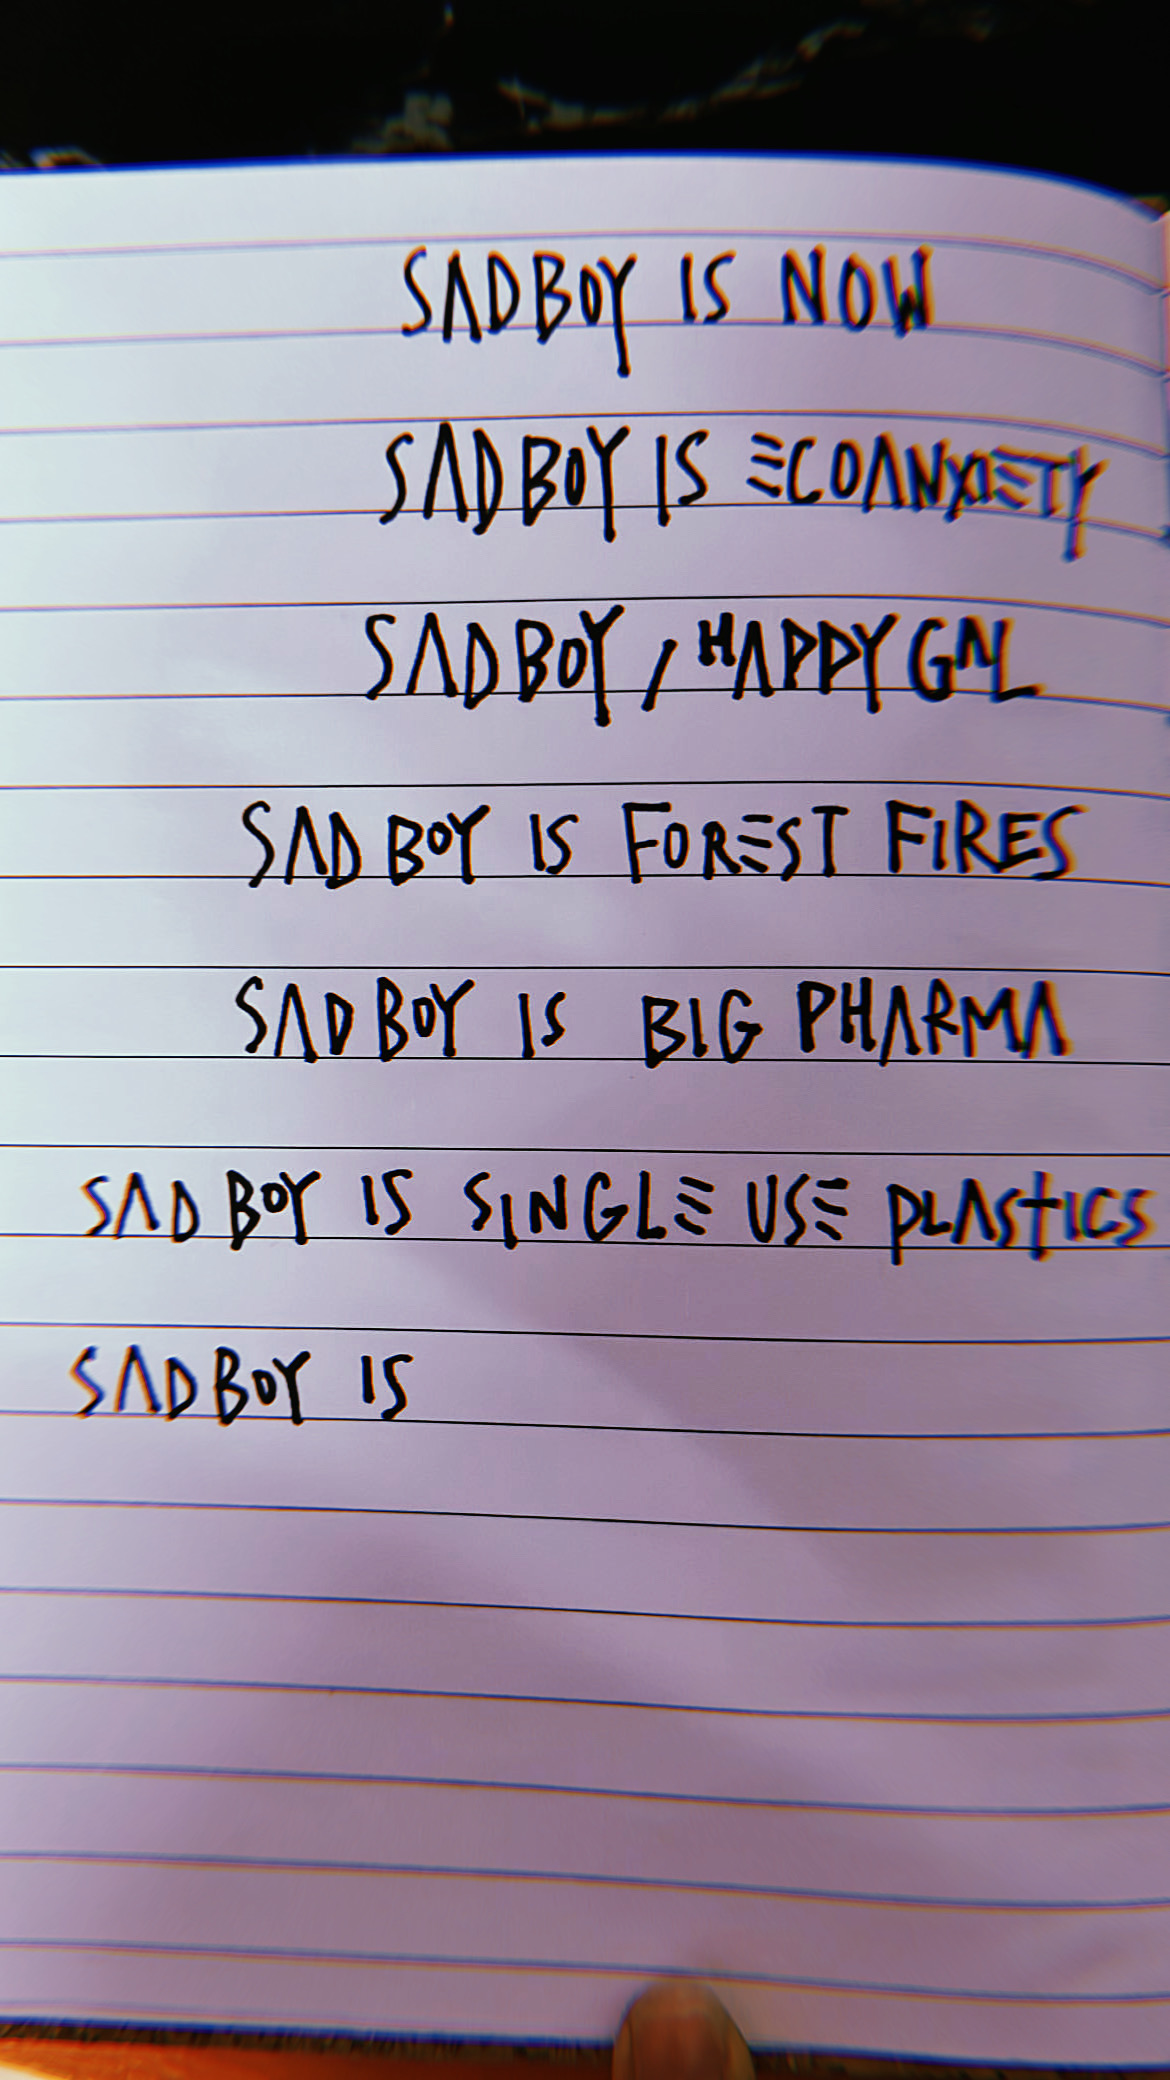 SADBOY IS NOW
SADBOY IS ECOANXIETY
SADBOY / HAPPY GAL
SAD BOY IS FOREST FIRES
SAD BOY IS BIG PHARMA
SAD BOY IS SINGLE USE PLASTICS
SADBOY IS